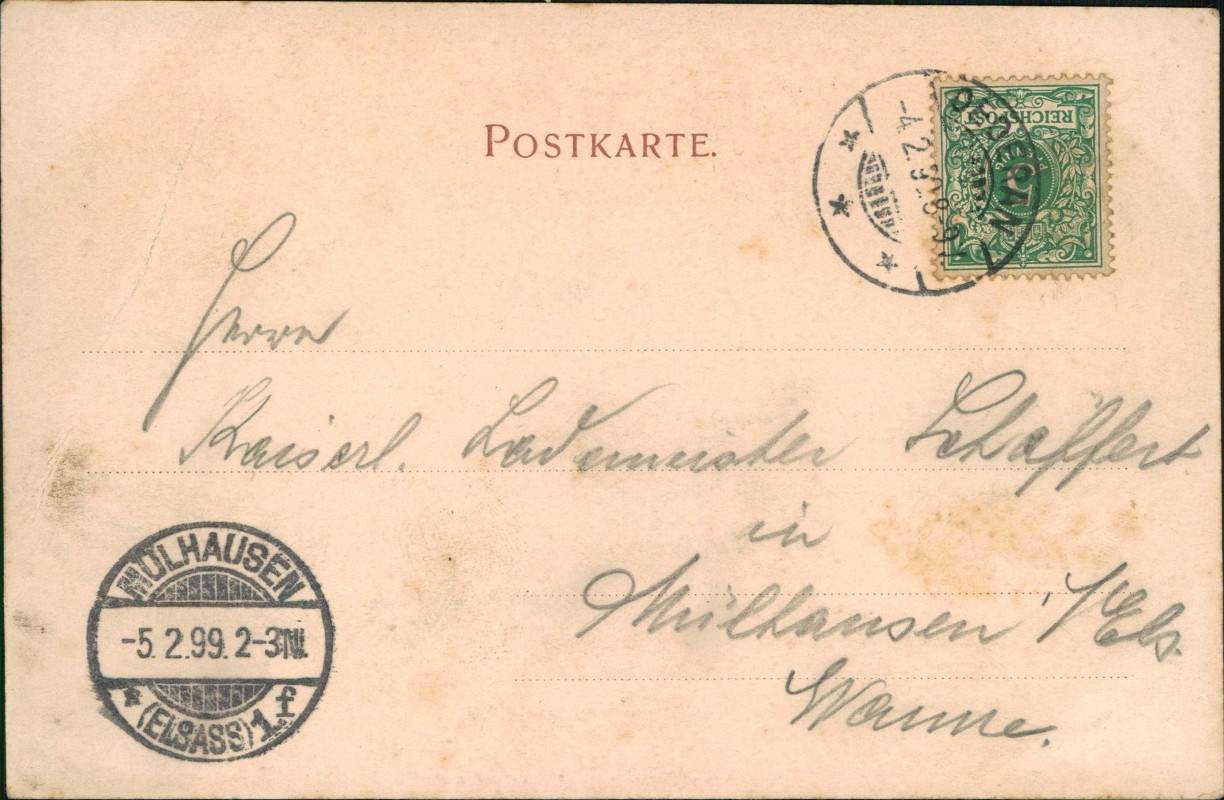 POSTKARTE.
REICHSPOST
5
OEDERAN
-4.2.99.8-9V.
Herrn
Kaiserl. Lademeister Schaffert
in
Mülhausen i/Els.
Wanne.
MÜLHAUSEN
-5.2.99.2-3N.
* (ELSASS) 1.f